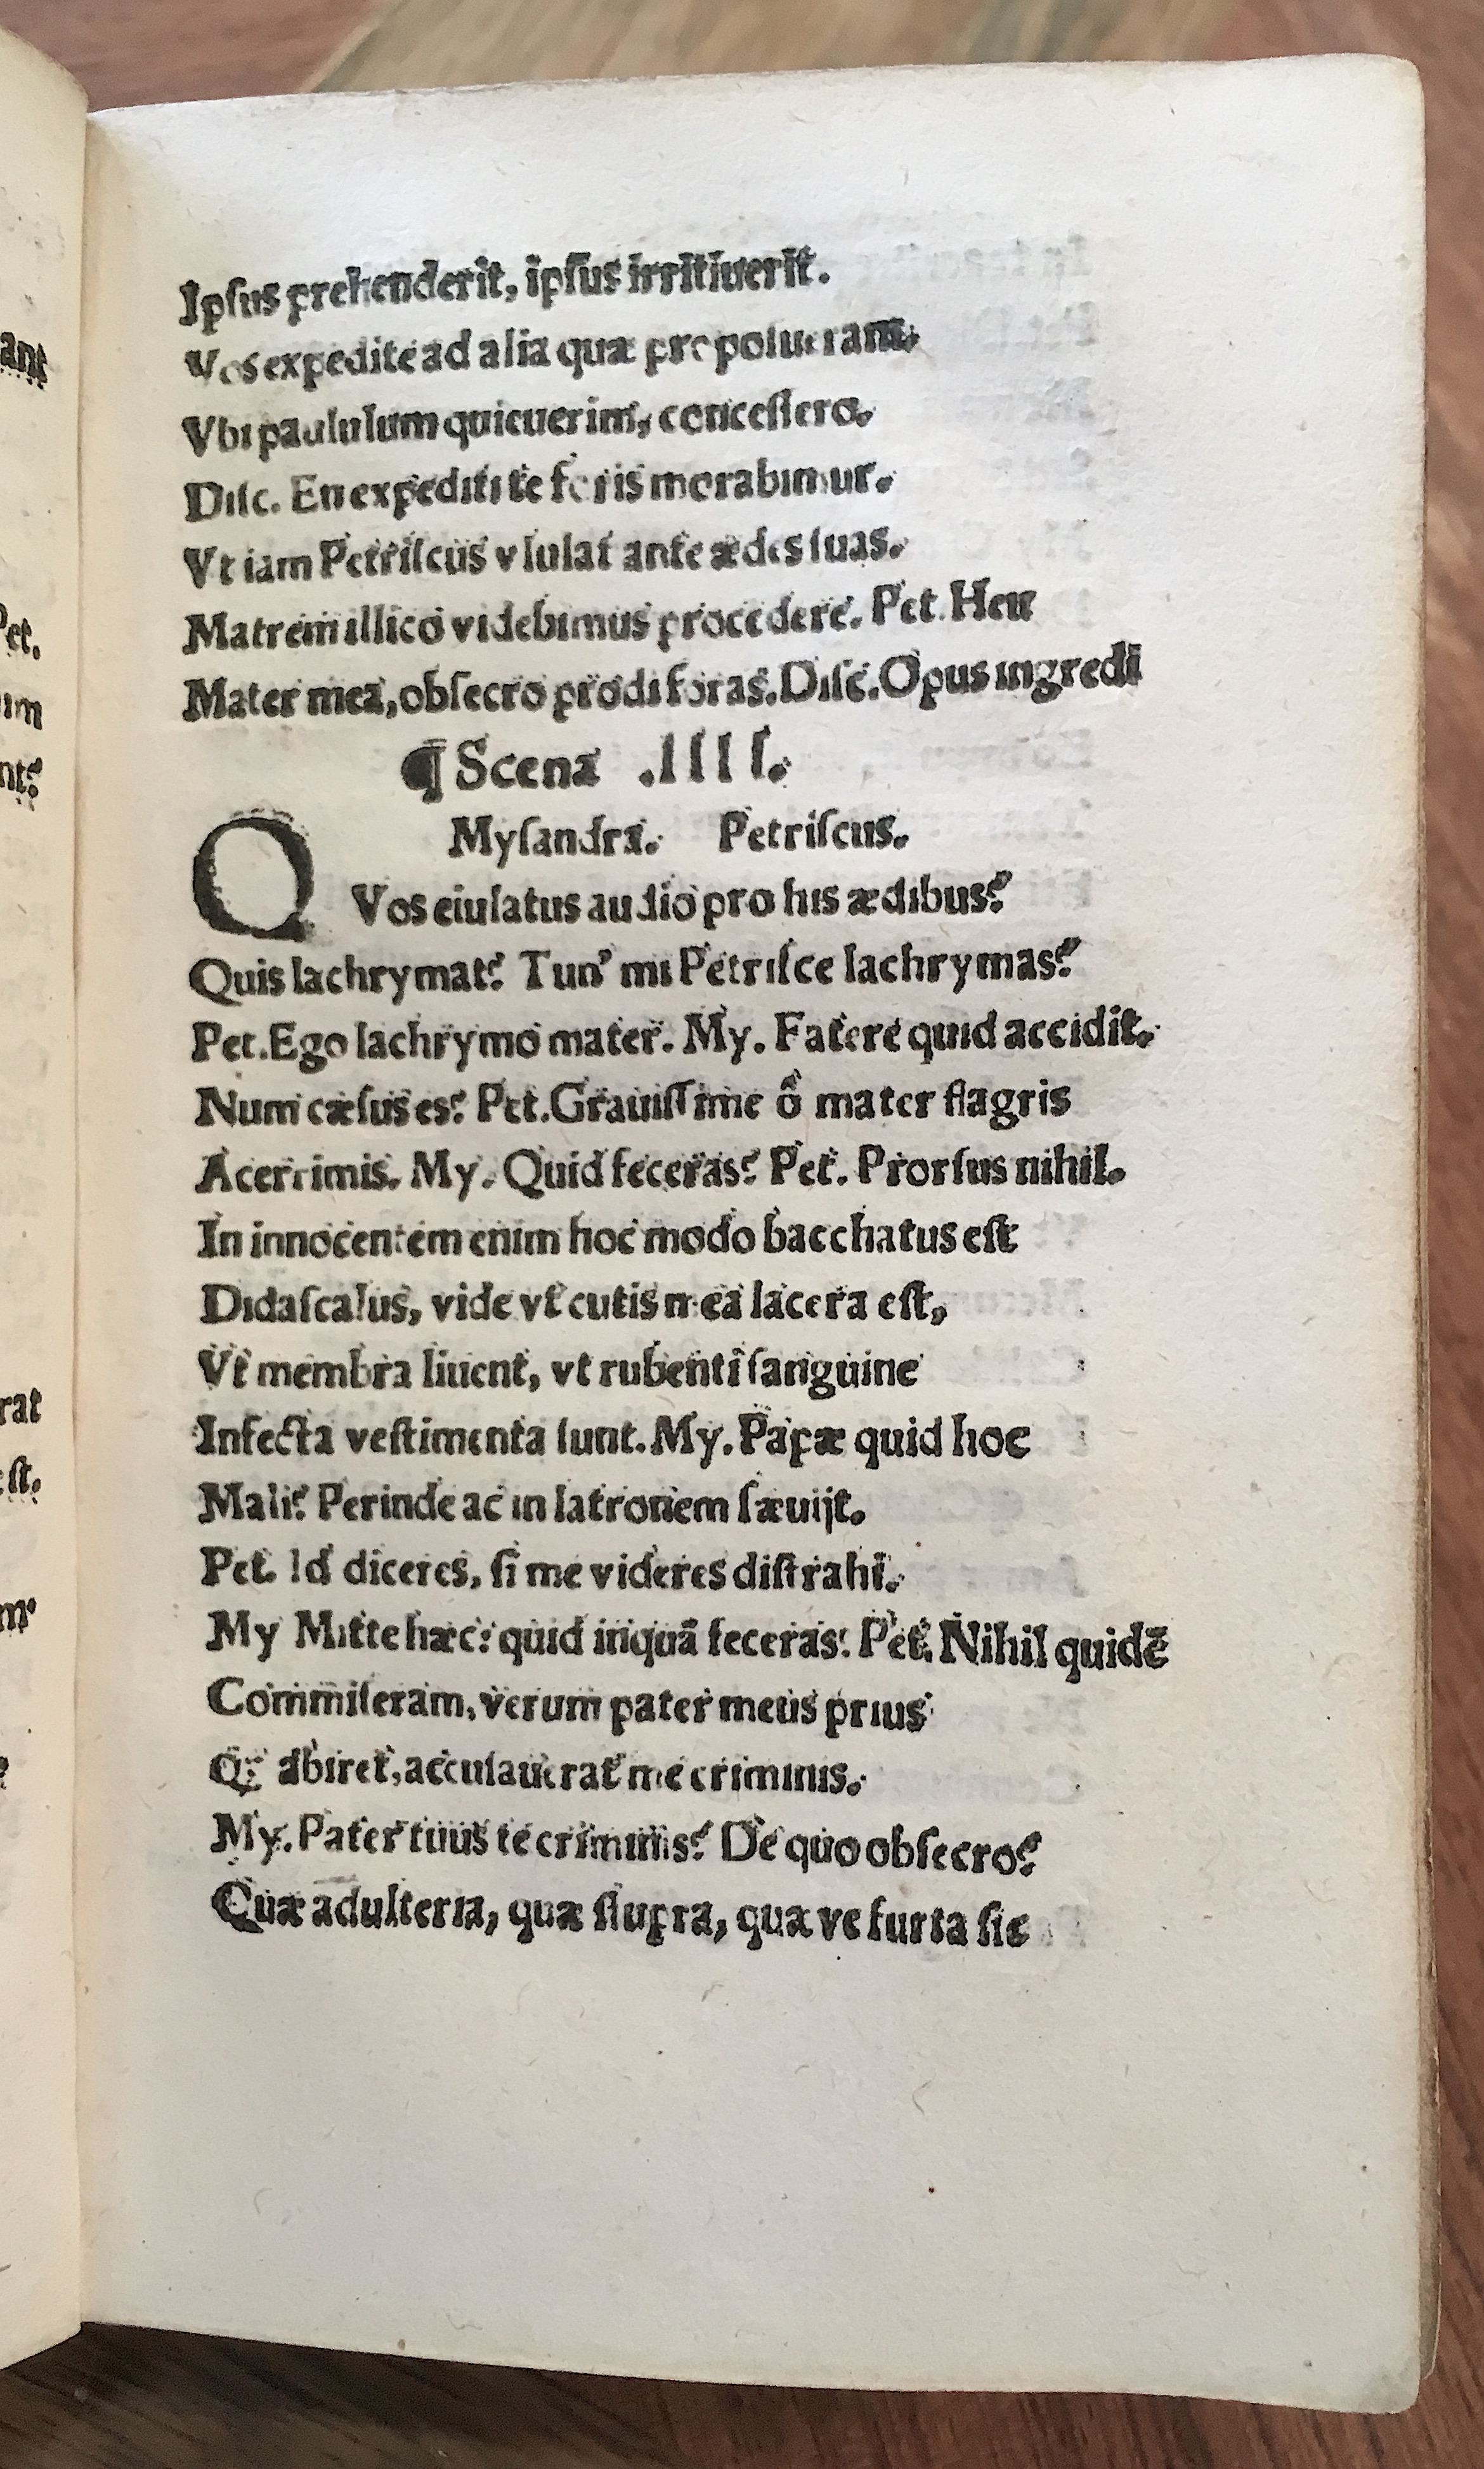 Ipſus prehenderit, ipſus irritiuerit.
Vos expedite ad alia quæ propoſueram,
Vbi paululum quieuerim, conceſſero.
Diſc. En expediti te foris morabimur.
Vt iam Petriſcus vlulat ante ædes ſuas.
Matrem illico videbimus procedere. Pet. Heu
Mater mea, obſecro prodi foras. Diſc. Opus ingredi
¶ Scena .IIII.
Myſandra. Petriſcus.
QVos eiulatus audio pro his ædibus?
Quis lachrymat? Tun' mi Petriſce lachrymas?
Pet. Ego lachrymo mater. My. Fatere quid accidit.
Num cæſus es? Pet. Grauiſſime ô mater flagris
Acerrimis. My. Quid feceras? Pet. Prorſus nihil.
In innocentem enim hoc modo bacchatus eſt
Didaſcalus, vide vt cutis mea lacera eſt,
Vt membra liuent, vt rubenti ſanguine
Infecta veſtimenta ſunt. My. Papæ quid hoc
Mali? Perinde ac in latronem ſæuijt.
Pet. Id diceres, ſi me videres diſtrahi.
My Mitte hæc: quid inquā feceras? Pet. Nihil quidē
Commiſeram, verum pater meus prius
abiret, accuſauerat me criminis.
My. Pater tuus te criminis? De quo obſecro?
Quæ adulteria, quæ ſtupra, quæ ve furta ſic
ant
Pet.
um
nt?
rat
ſt.
m